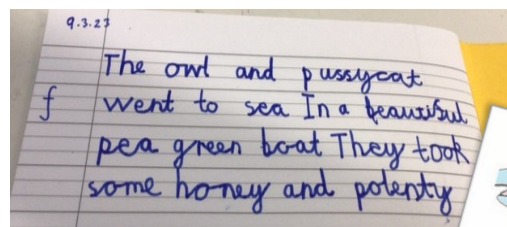 9.3.23
The owl and pussycat
f went to sea In a beautiful
pea green boat They took
some honey and polenty